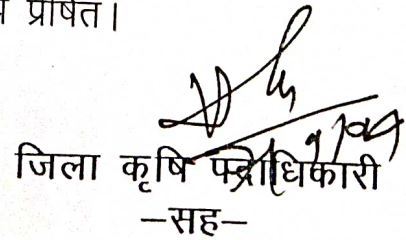 प्रेषित।
जिला कृषि पदाधिकारी
–सह–